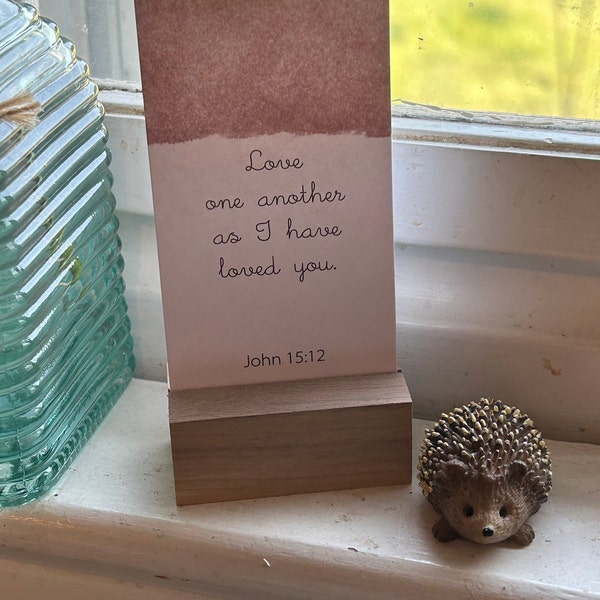 Love
one another
as I have
loved you.
John 15:12